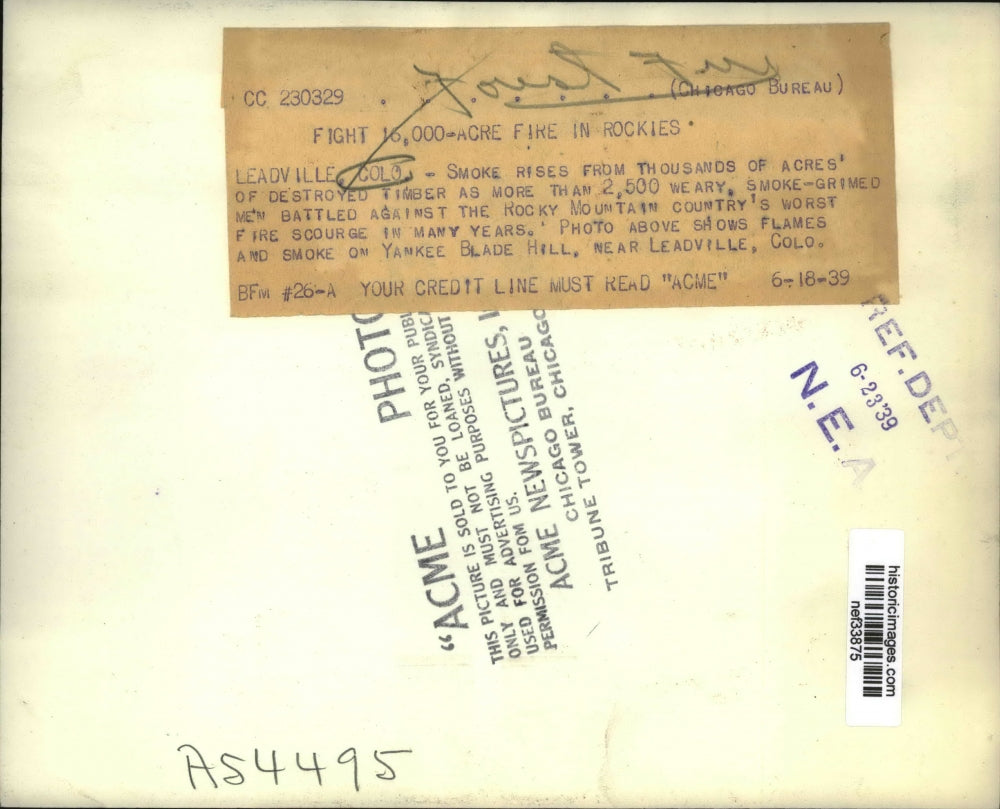 Forest Fire
CC 230329 . . . . . (CHICAGO BUREAU)
FIGHT 16,000-ACRE FIRE IN ROCKIES
LEADVILLE, COLO. - SMOKE RISES FROM THOUSANDS OF ACRES
OF DESTROYED TIMBER AS MORE THAN 2,500 WEARY, SMOKE-GRIMED
MEN BATTLED AGAINST THE ROCKY MOUNTAIN COUNTRY'S WORST
FIRE SCOURGE IN MANY YEARS. PHOTO ABOVE SHOWS FLAMES
AND SMOKE ON YANKEE BLADE HILL, NEAR LEADVILLE, COLO.
BFM #26-A YOUR CREDIT LINE MUST READ "ACME" 6-18-39
"ACME PHOTO
THIS PICTURE IS SOLD TO YOU FOR YOUR PUBL
ONLY AND MUST NOT BE LOANED, SYNDIC
USED FOR ADVERTISING PURPOSES WITHOUT
PERMISSION FOM US.
ACME NEWSPICTURES, I
CHICAGO BUREAU
TRIBUNE TOWER, CHICAGO
REF. DEPT
6-23'39
N.E.A
historicimages.com
nef33875
A54495